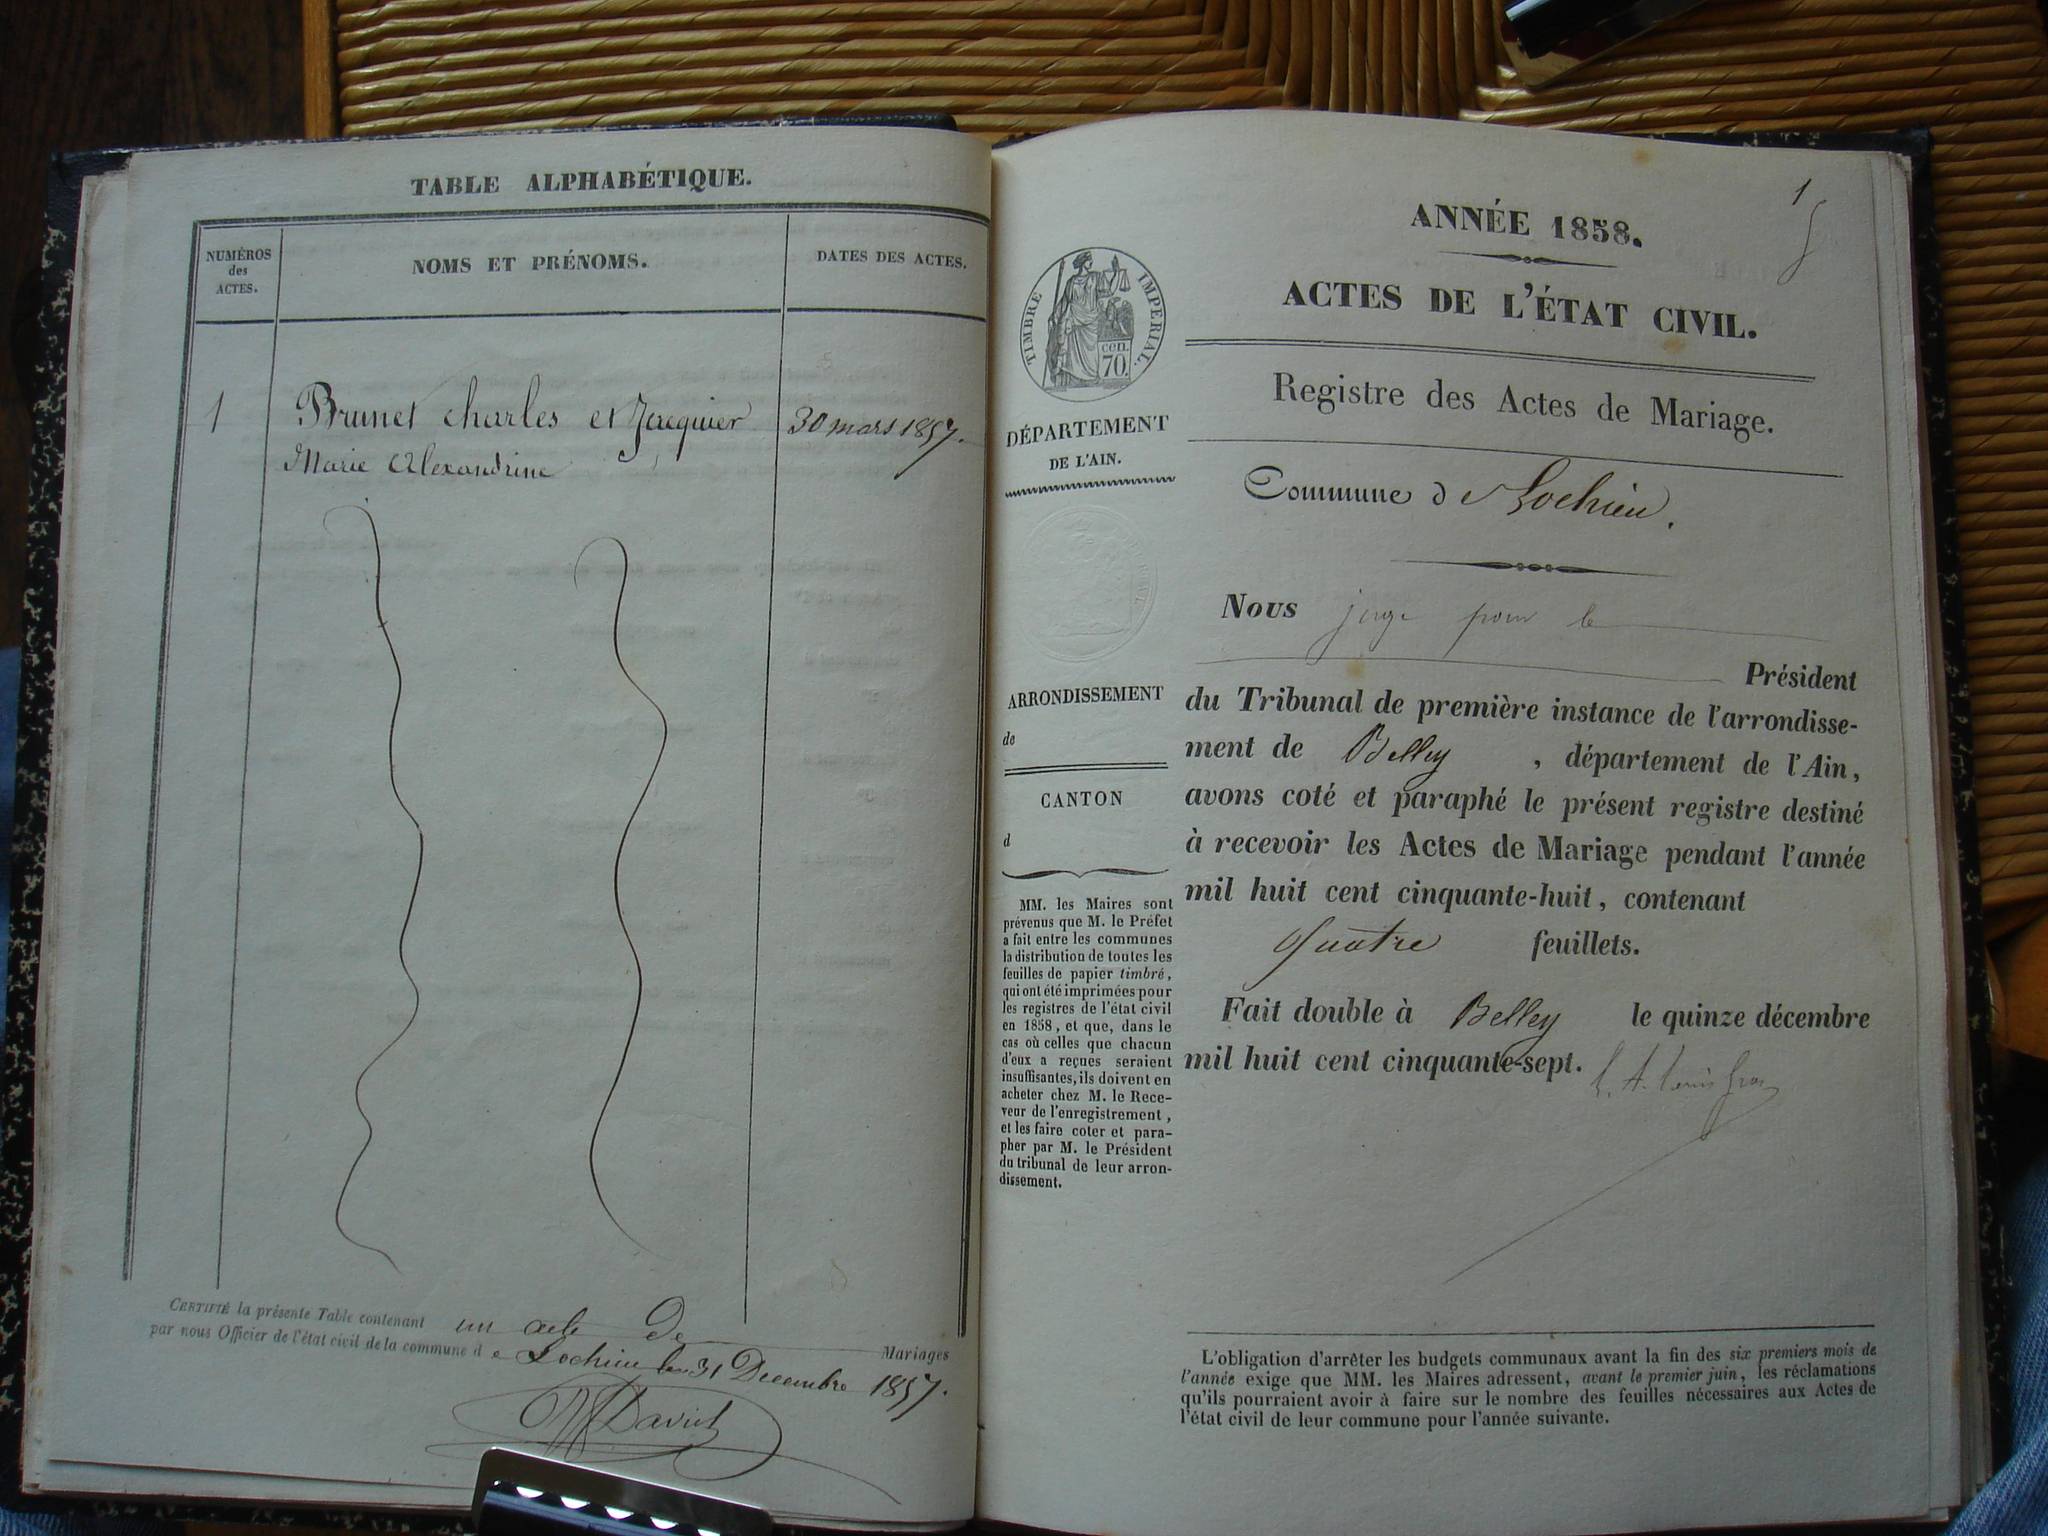 TABLE ALPHABÉTIQUE.
NUMÉROS
des
ACTES.
NOMS ET PRÉNOMS.
DATES DES ACTES.
1
Brunet Charles et Jacquier
30 mars 1857.
Marie Alexandrine
CERTIFIÉ la présente Table contenant un acte De Mariages
par nous Officier de l'état civil de la commune d e Lochieu le 31 Decembre 1857.
David
1
ANNÉE 1858.
ACTES DE L'ÉTAT CIVIL.
TIMBRE IMPERIAL.
cen.
70.
Registre des Actes de Mariage.
DÉPARTEMENT
DE L'AIN.
Commune d e Lochieu.
Nous juge pour le
Président
du Tribunal de première instance de l'arrondisse-
ment de Belley , département de l'Ain,
avons coté et paraphé le présent registre destiné
à recevoir les Actes de Mariage pendant l'année
mil huit cent cinquante-huit, contenant
quatre feuillets.
Fait double à Belley le quinze décembre
mil huit cent cinquante-sept.
ARRONDISSEMENT
de
CANTON
d
MM. les Maires sont
prévenus que M. le Préfet
a fait entre les communes
la distribution de toutes les
feuilles de papier timbré,
qui ont été imprimées pour
les registres de l'état civil
en 1858, et que, dans le
cas où celles que chacun
d'eux a reçues seraient
insuffisantes, ils doivent en
acheter chez M. le Rece-
veur de l'enregistrement,
et les faire coter et para-
pher par M. le Président
du tribunal de leur arron-
dissement.
L'obligation d'arrêter les budgets communaux avant la fin des six premiers mois de
l'année exige que MM. les Maires adressent, avant le premier juin, les réclamations
qu'ils pourraient avoir à faire sur le nombre des feuilles nécessaires aux Actes de
l'état civil de leur commune pour l'année suivante.